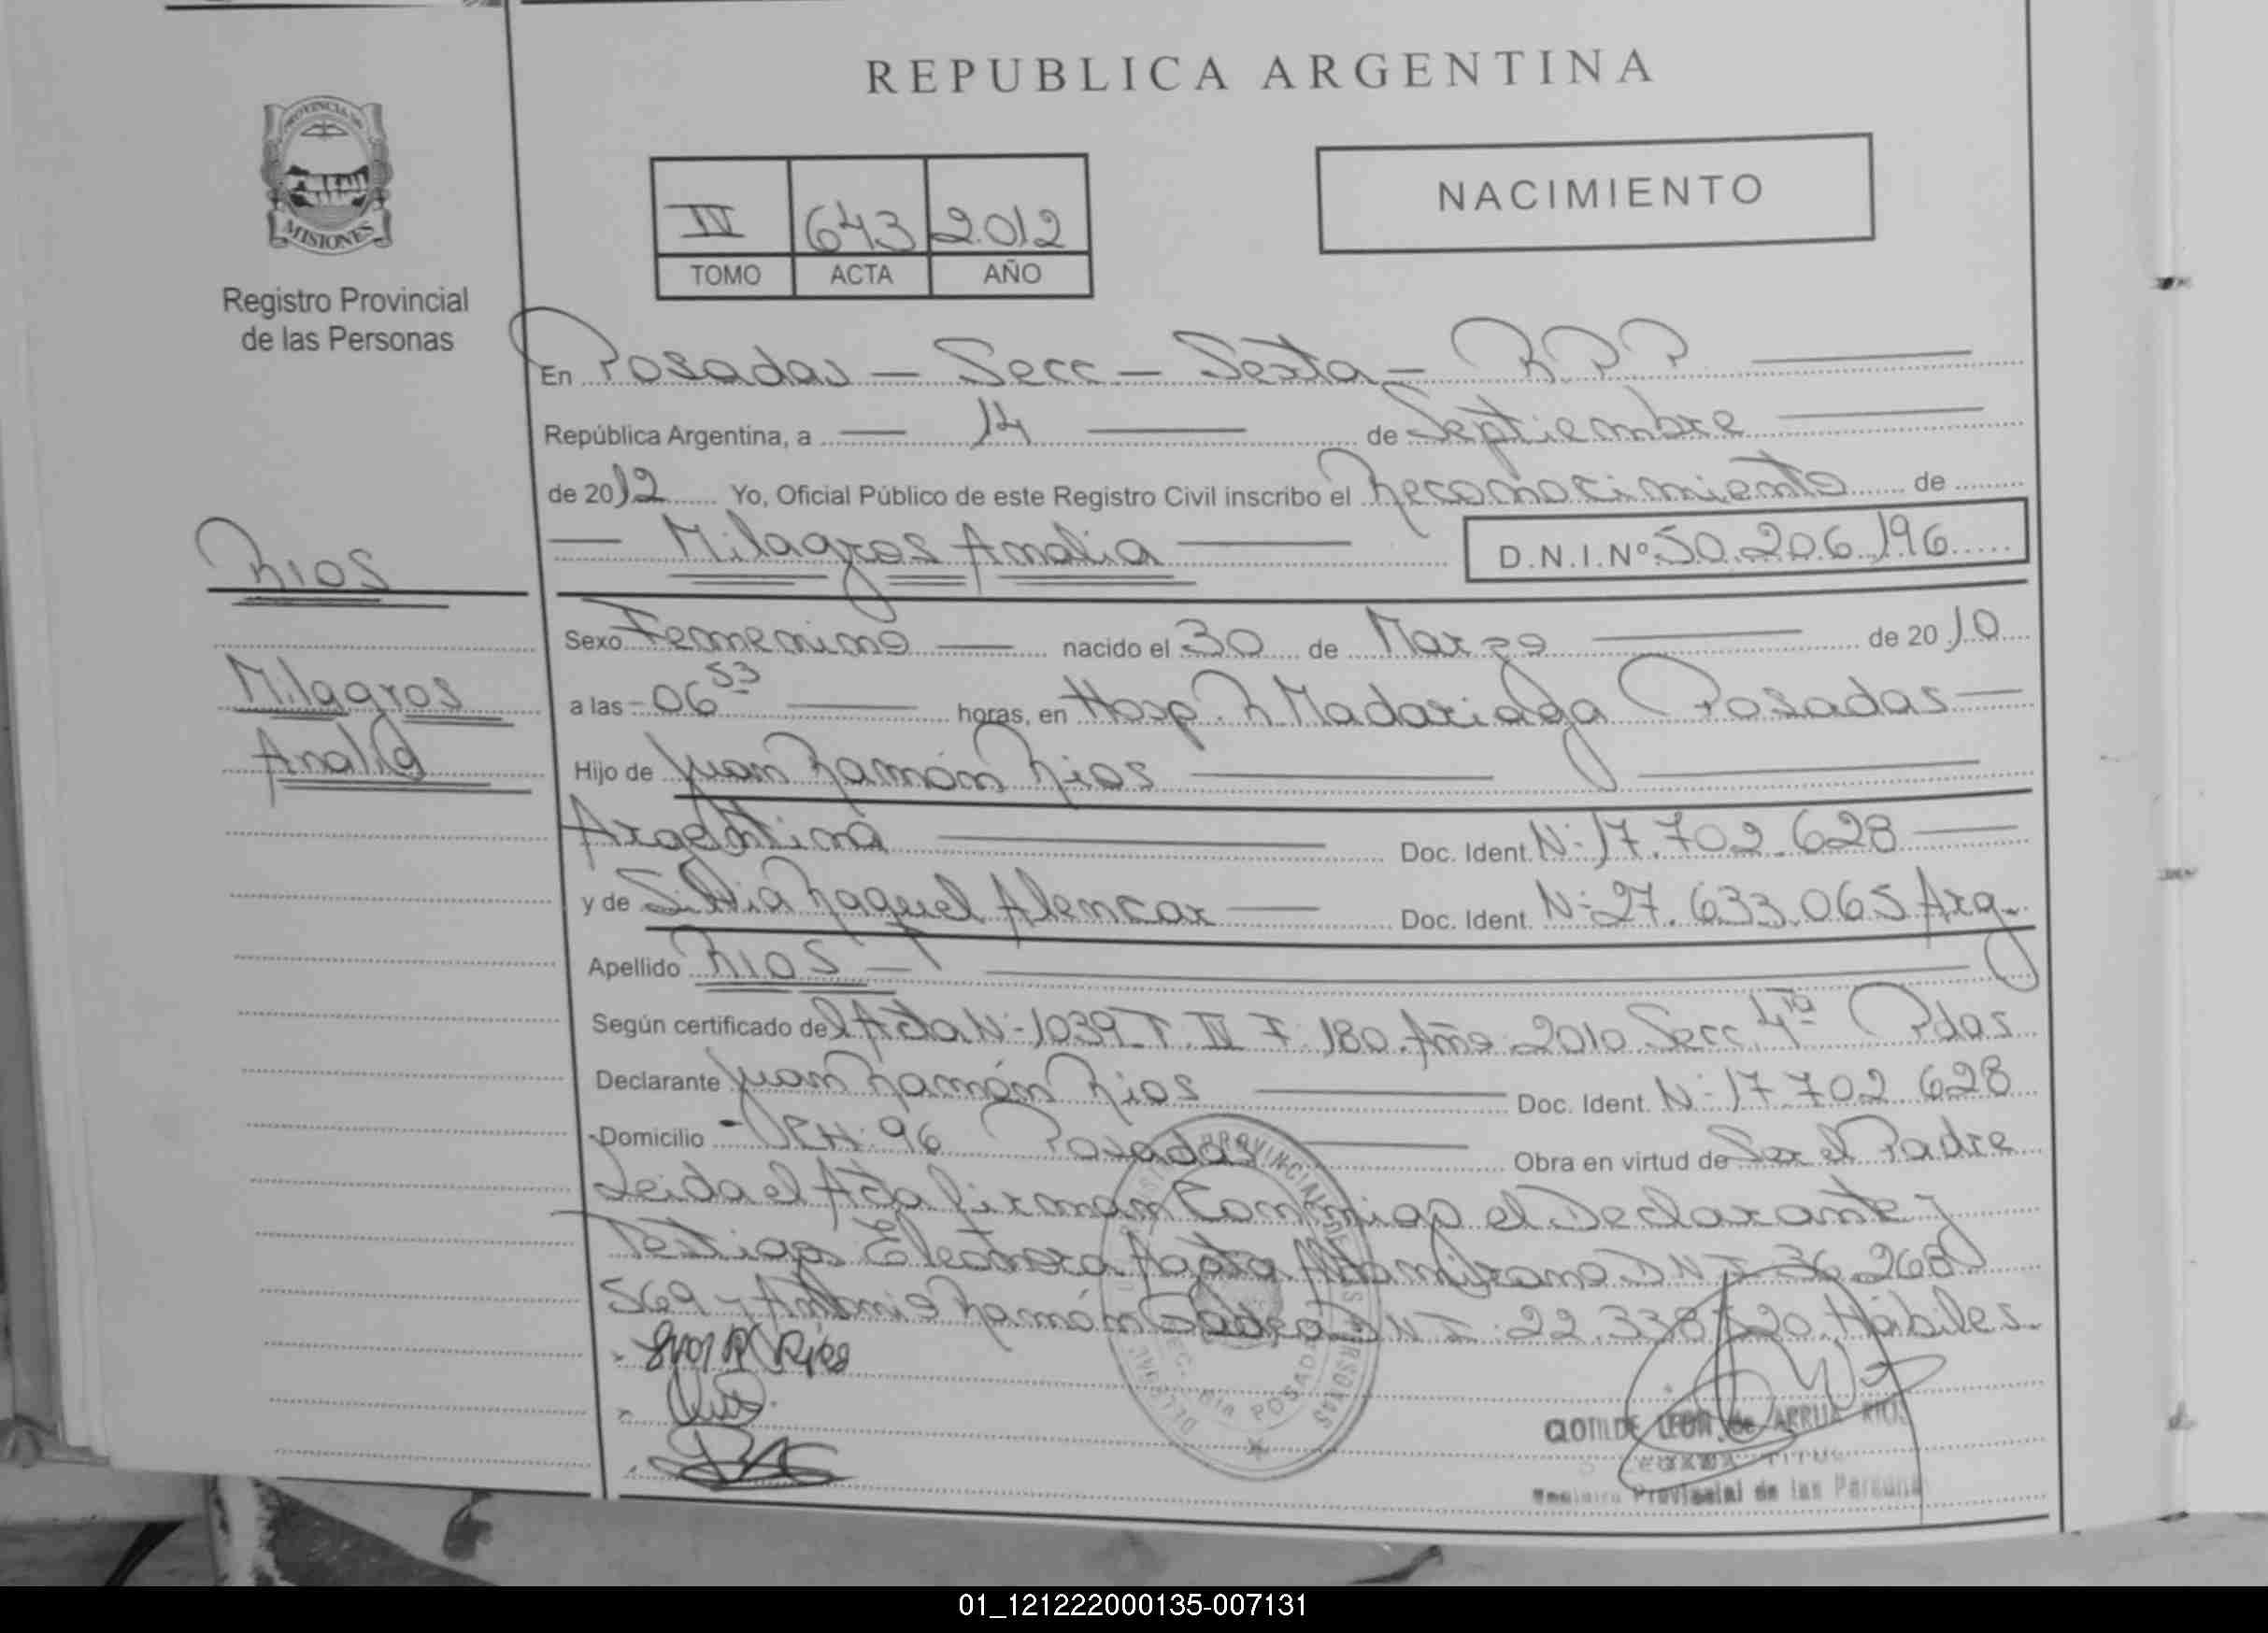 REPUBLICA ARGENTINA
PROVINCIA DE
MISIONES
Registro Provincial
de las Personas
NACIMIENTO
IV 643 2012
TOMO ACTA AÑO
En Posadas - Secc - Sexta - R.P.P
República Argentina, a 14 de Septiembre
de 2012 Yo, Oficial Público de este Registro Civil inscribo el Reconocimiento de
Milagros Analia D.N.I.Nº 50.206.196
RIOS
Milagros
Analia
Sexo Femenino nacido el 30 de Marzo de 2010
a las 06 53 horas, en Hosp. R Madariaga Posadas
Hijo de Juan Ramón Rios
Argentina Doc. Ident. N: 17.702.628
y de Silvia Raquel Alencar Doc. Ident. N: 27.633.065 Arg.
Apellido RIOS
Según certificado del Acta N: 1039 T. III F. 180. Año 2010 Secc 4ta Pdas
Declarante Juan Ramón Rios Doc. Ident. N: 17.702.628
Domicilio 96 Posadas Obra en virtud de Ser el Padre
Leida el Acta firman Conmigo el Declarante y
Testigos Eleonora Altamirano DNI 36.268
569 - y Antonio Ramón DNI 22.338.720. Hábiles.
Rios
CLOTILDE LEON de ARRUA RIOS
Registro Provincial de las Personas
01_121222000135-007131